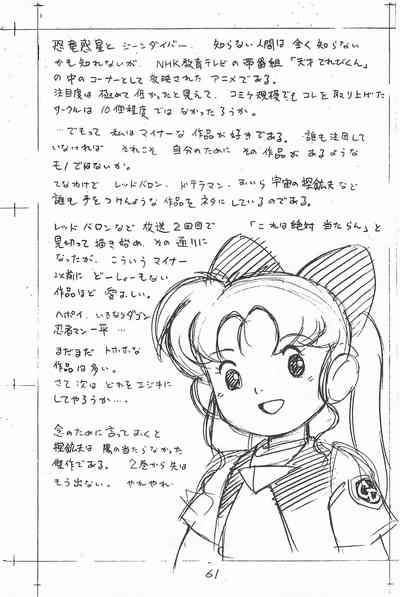 恐竜惑星と ジーンダイバー、知らない人間は全く知らない
かも知れないが、NHK教育テレビの帯番組「天才てれびくん」
の中のコーナーとして放映された アニメである。
注目度は極めて低かったと見えて、コミケ規模でもコレを取り上げた
サークルは10個程度ではなかっただろうか。
…でもって 私はマイナーな作品が好きである。誰も注目して
いなければ それこそ 自分のために その作品があるような
モノではないか。
てなわけで レッドバロン、ドテラマン、すいら 宇宙の探鉱夫など
誰も手をつけんような作品をネタにしているのである。
レッドバロンなど 放送2回目で 「これは絶対 当たらん」と
見切って描き始め、その通りに
なったが、こういう マイナー
以前に どーしょーもない
作品ほど 愛おしい。
ヘポイ、いきなりダゴン
忍者マン一平…
まだまだ トホホな
作品は多い。
さて次は どれをエジキに
してやろうか…。
念のために言っておくと
探鉱夫は 陽の当たらなかった
傑作である。2巻から先は
もう出ない。やれやれ
61